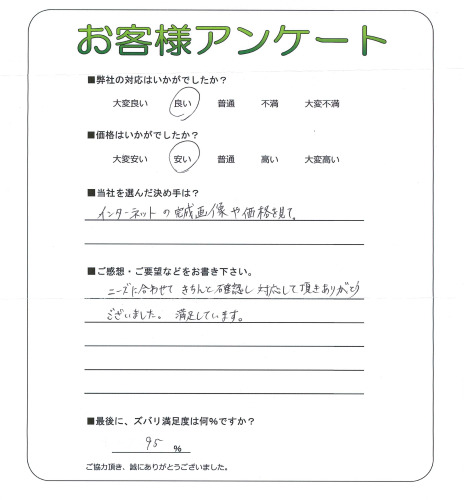 お客様アンケート
■弊社の対応はいかがでしたか？
大変良い　良い　普通　不満　大変不満
■価格はいかがでしたか？
大変安い　安い　普通　高い　大変高い
■当社を選んだ決め手は？
インターネットの完成画像や価格を見て。
■ご感想・ご要望などをお書き下さい。
ニーズに合わせてきちんと確認し対応して頂きありがとう
ございました。満足しています。
■最後に、ズバリ満足度は何%ですか？
95 %
ご協力頂き、誠にありがとうございました。